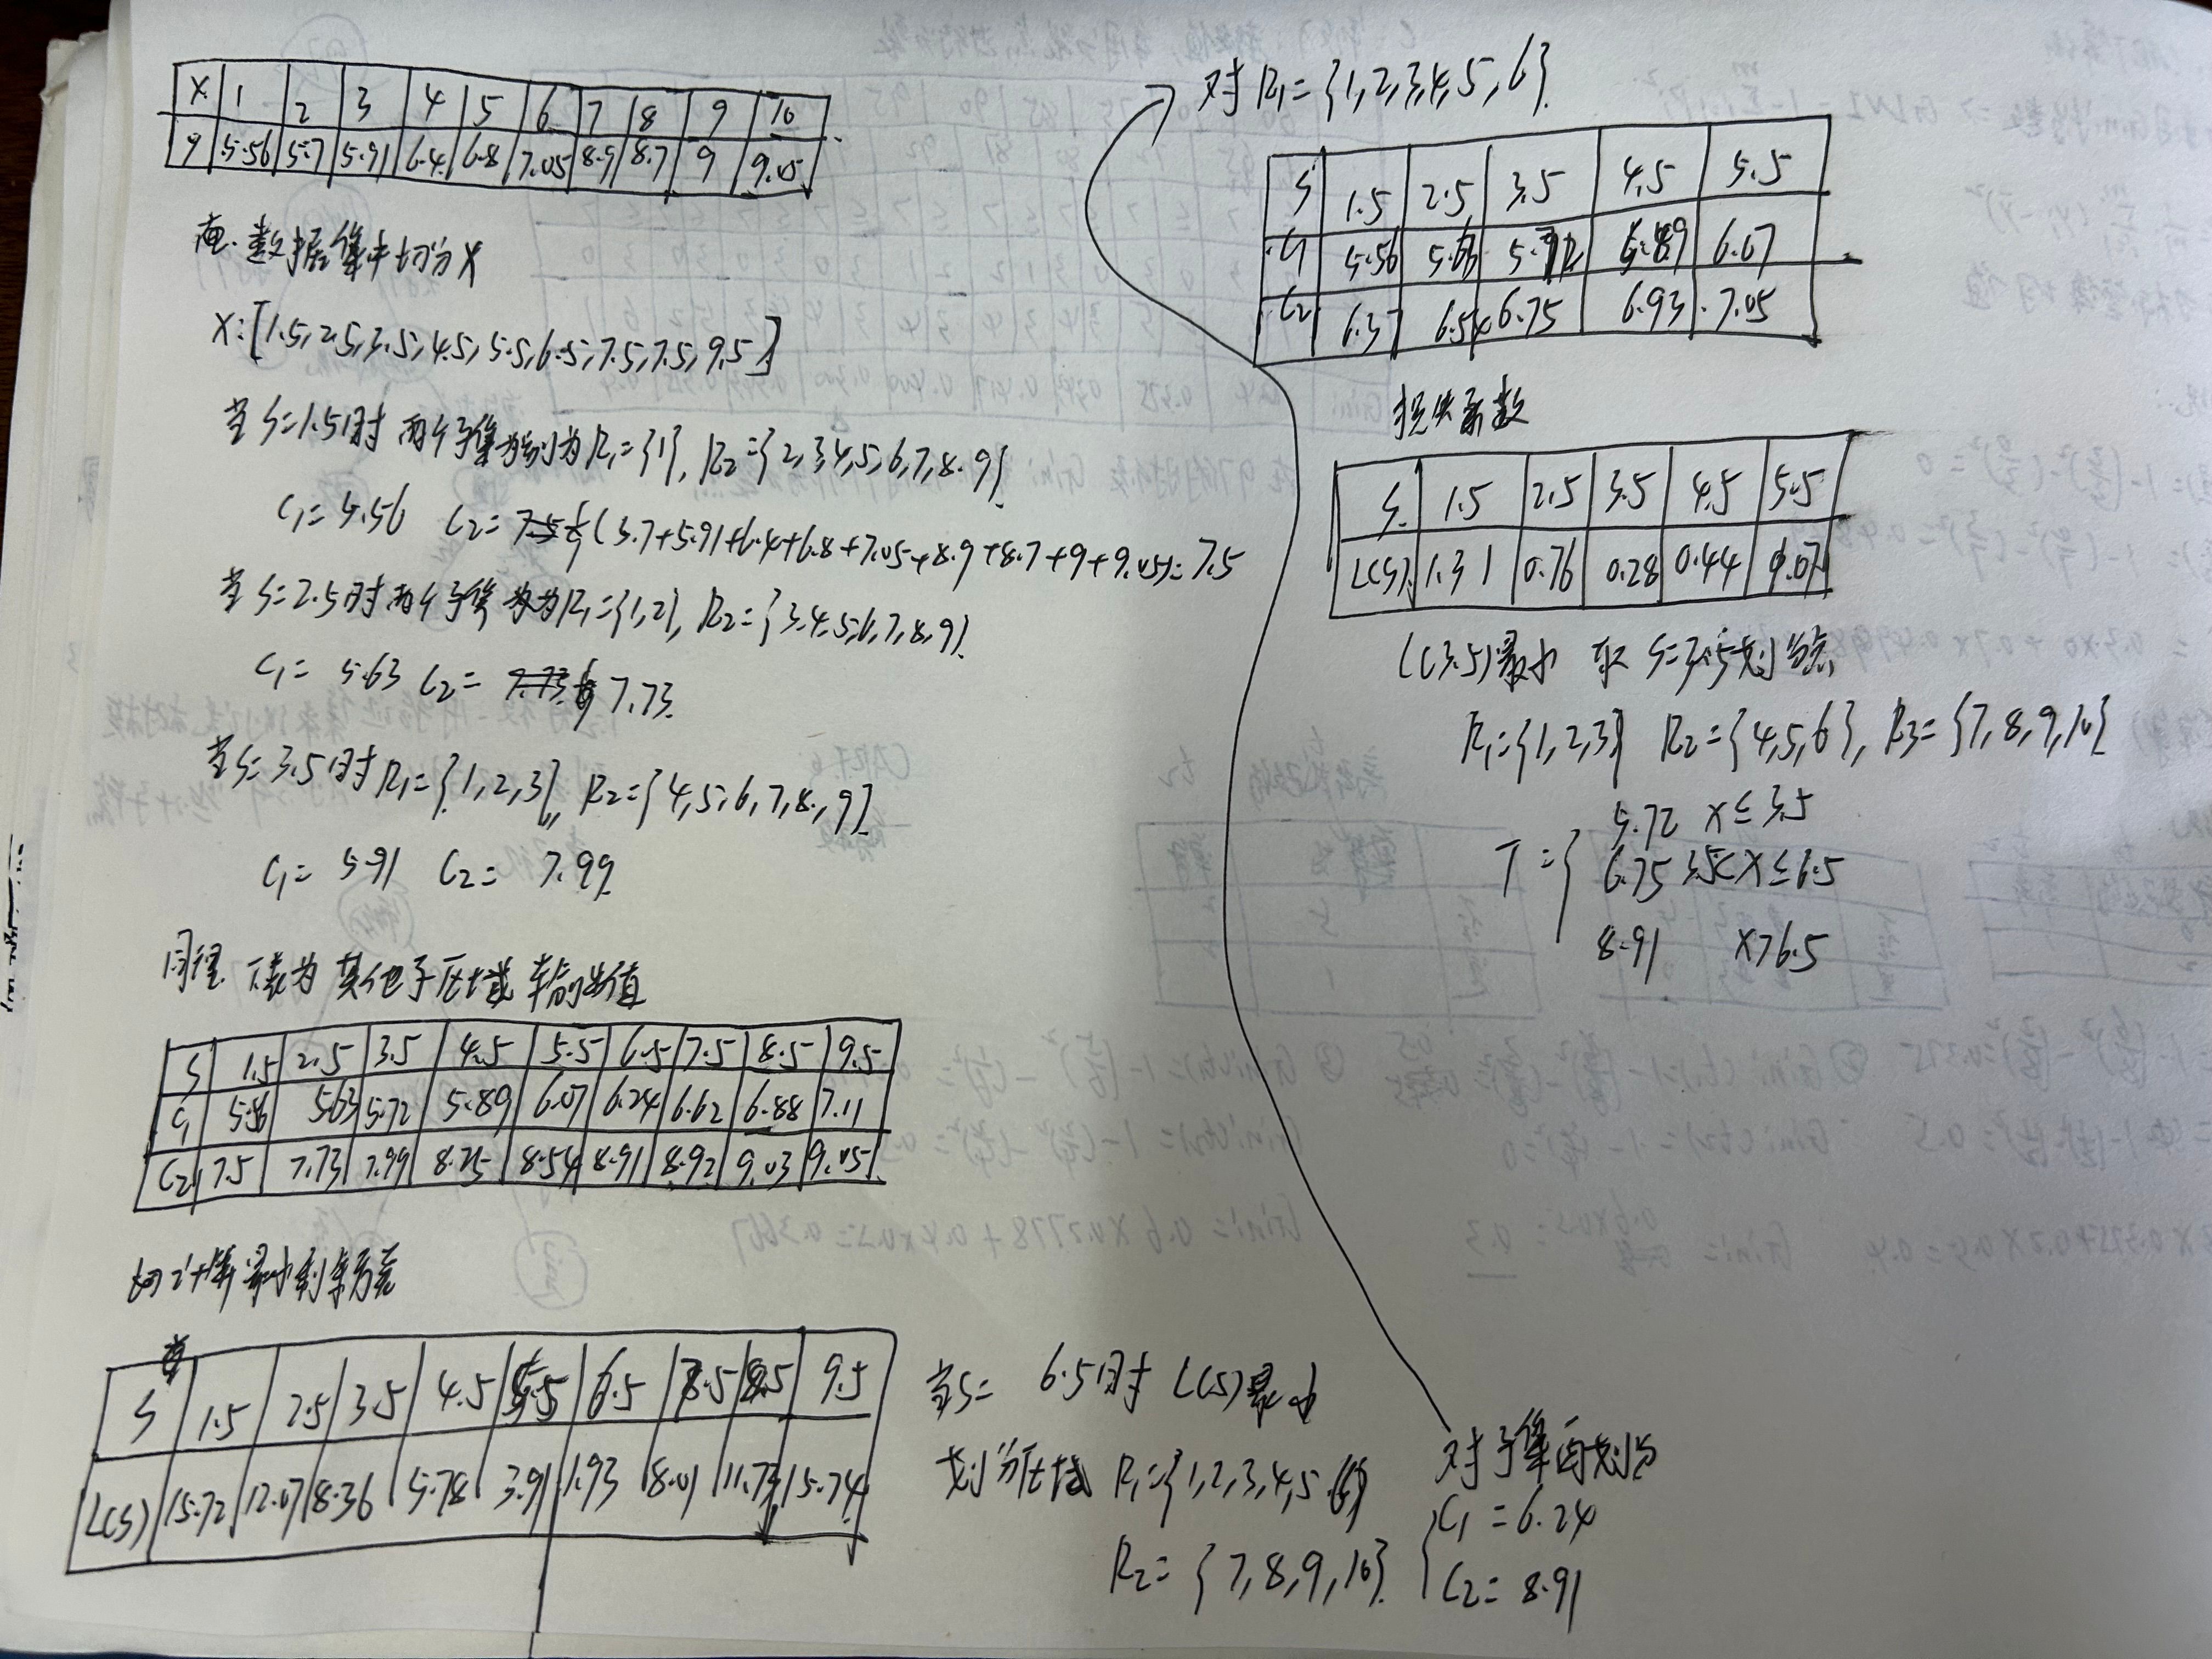 X 1 2 3 4 5 6 7 8 9 10
y 5.56 5.7 5.91 6.4 6.8 7.05 8.9 8.7 9 9.05
在数据集中切分X
X:[1.5,2.5,3.5,4.5,5.5,6.5,7.5,7.5,9.5]
当S=1.5时 两个子集分别为R₁={1}, R₂={2,3,4,5,6,7,8.9}
C₁=5.56 C₂= (3.7+5.91+6.4+6.8+7.05+8.9+8.7+9+9.05)=7.5
当S=2.5时两个子集 为R₁={1,2}, R₂={3.4,5,6,7,8,9}
C₁= 5.63 C₂= 7.73
当S=3.5时R₁={1,2,3}, R₂={4,5,6,7,8,9}
C₁= 5.91 C₂= 7.99
同理 下表为 其他子区域 输出值
S 1.5 2.5 3.5 4.5 5.5 6.5 7.5 8.5 9.5
C₁ 5.56 5.63 5.72 5.89 6.07 6.24 6.62 6.88 7.11
C₂ 7.5 7.73 7.99 8.25 8.54 8.91 8.92 9.03 9.05
计算最小剩余方差
S 1.5 2.5 3.5 4.5 5.5 6.5 7.5 8.5 9.5
L(S) 15.72 12.07 8.36 5.78 3.91 1.93 8.01 11.73 15.74
当S= 6.5时 L(S)最小
划分区域 R₁={1,2,3,4,5,6}
R₂= {7,8,9,10}
对子集再划分
C₁=6.24
C₂=8.91
对R₁={1,2,3,4,5,6}
S 1.5 2.5 3.5 4.5 5.5
C₁ 5.56 5.63 5.72 5.89 6.07
C₂ 6.37 6.54 6.75 6.93 7.05
损失函数
S 1.5 2.5 3.5 4.5 5.5
L(S) 1.31 0.76 0.28 0.44 0.07
L(3.5)最小 取 S=3.5划分点
R₁={1,2,3} R₂={4,5,6}, R₃={7,8,9,10}
5.72 X≤3.5
T={ 6.75 3.5<X≤6.5
8.91 X>6.5